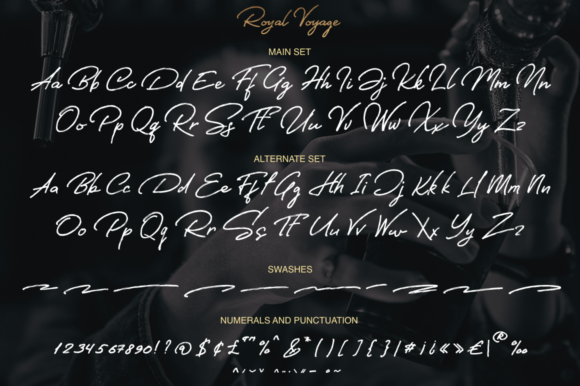 Royal Voyage
MAIN SET
Aa Bb Cc Dd Ee Ff Gg Hh Ii Jj Kk Ll Mm Nn
Oo Pp Qq Rr Ss Tt Uu Vv Ww Xx Yy Zz
ALTERNATE SET
Aa Bb Cc Dd Ee Fff Gg Hh Ii Jj Kk k Ll Mm Nn
Oo Pp Qq Rr Ss Tt Uu Vv Ww Xx Yy Zz
SWASHES
NUMERALS AND PUNCTUATION
1234567890!?@$¢£"" %&*()[]{}|#¡¿«»€|®‰